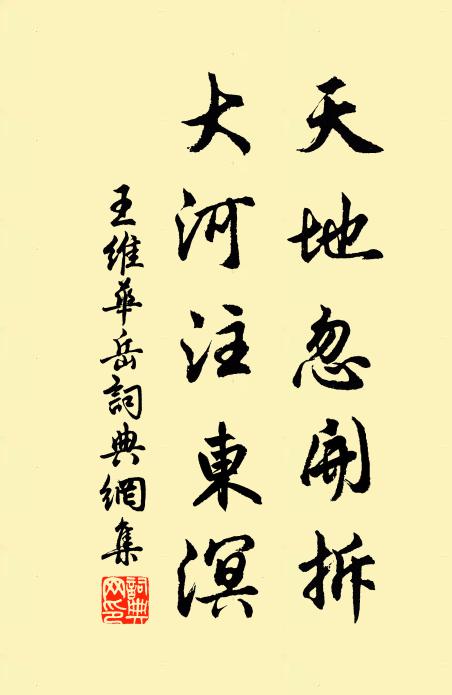 天地忽開拆
大河注東溟
王維華岳詞典網集
詞典网印